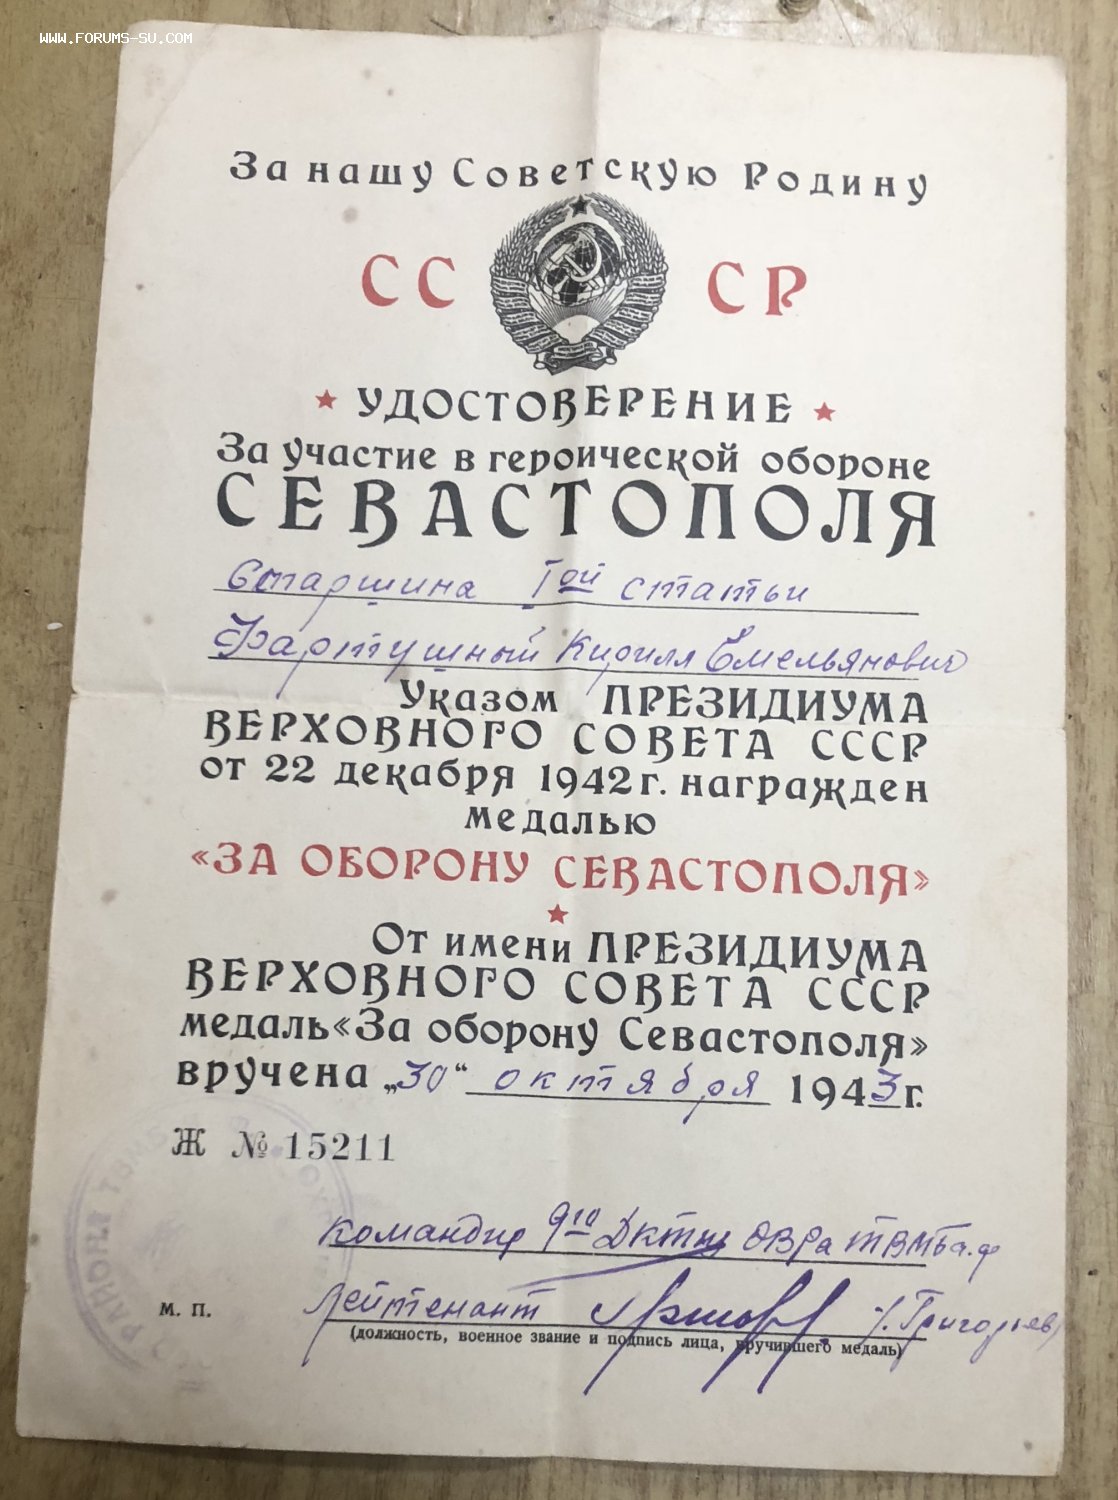 WWW.FORUMS-SU.COM
За нашу Советскую Родину
СС СР
УДОСТОВЕРЕНИЕ
За участие в героической обороне
СЕВАСТОПОЛЯ
Старшина Iой статьи
Фартушный Кирилл Емельянович
Указом ПРЕЗИДИУМА
ВЕРХОВНОГО СОВЕТА СССР
от 22 декабря 1942 г. награжден
медалью
«ЗА ОБОРОНУ СЕВАСТОПОЛЯ»
От имени ПРЕЗИДИУМА
ВЕРХОВНОГО СОВЕТА СССР
медаль «За оборону Севастополя»
вручена „30“ октября 1943 г.
Ж № 15211
командир 9го ОВРа ТВМБ
М. П.
Лейтенант /Григорьев/
(должность, военное звание и подпись лица, вручившего медаль)